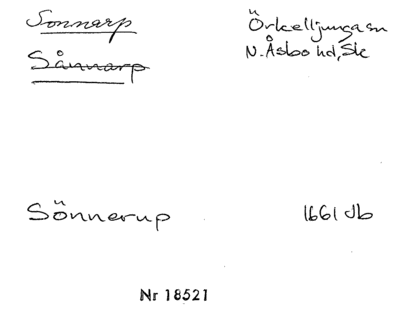 Sonnarp Örkelljunga sn
Sånnarp N. Åsbo hd, Sk
Sönnerup 1661 Jb
Nr 18521